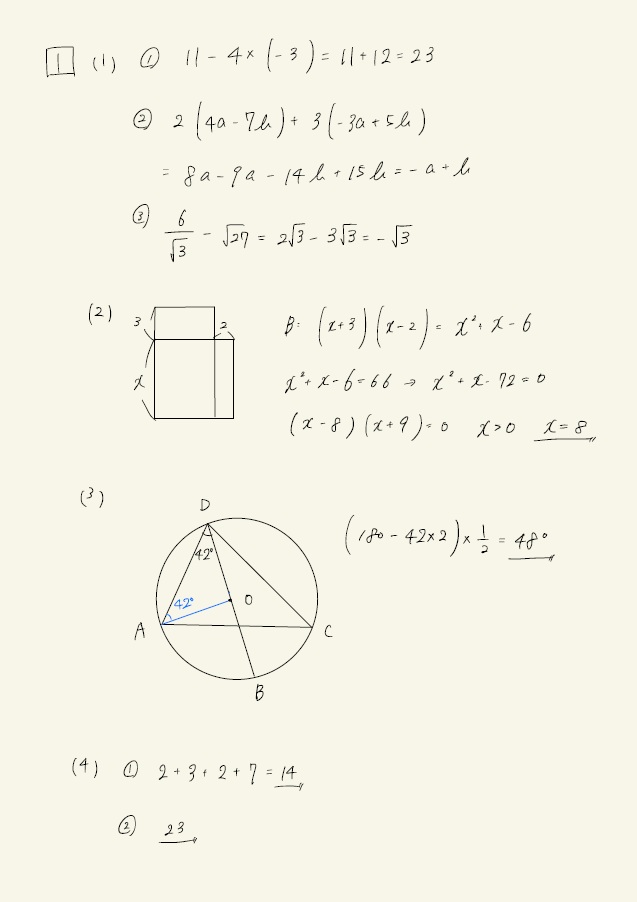 1 (1) ① 11 - 4 × (-3) = 11 + 12 = 23
② 2(4a - 7b) + 3(-3a + 5b)
= 8a - 9a - 14b + 15b = -a + b
③ 6/√3 - √27 = 2√3 - 3√3 = -√3
(2) 3 2 x B: (x+3)(x-2) = x² + x - 6
x² + x - 6 = 66 → x² + x - 72 = 0
(x - 8)(x + 9) = 0 x > 0 x = 8
(3) D (180 - 42×2) × 1/2 = 48°
42°
42° O
A C
B
(4) ① 2 + 3 + 2 + 7 = 14
② 23